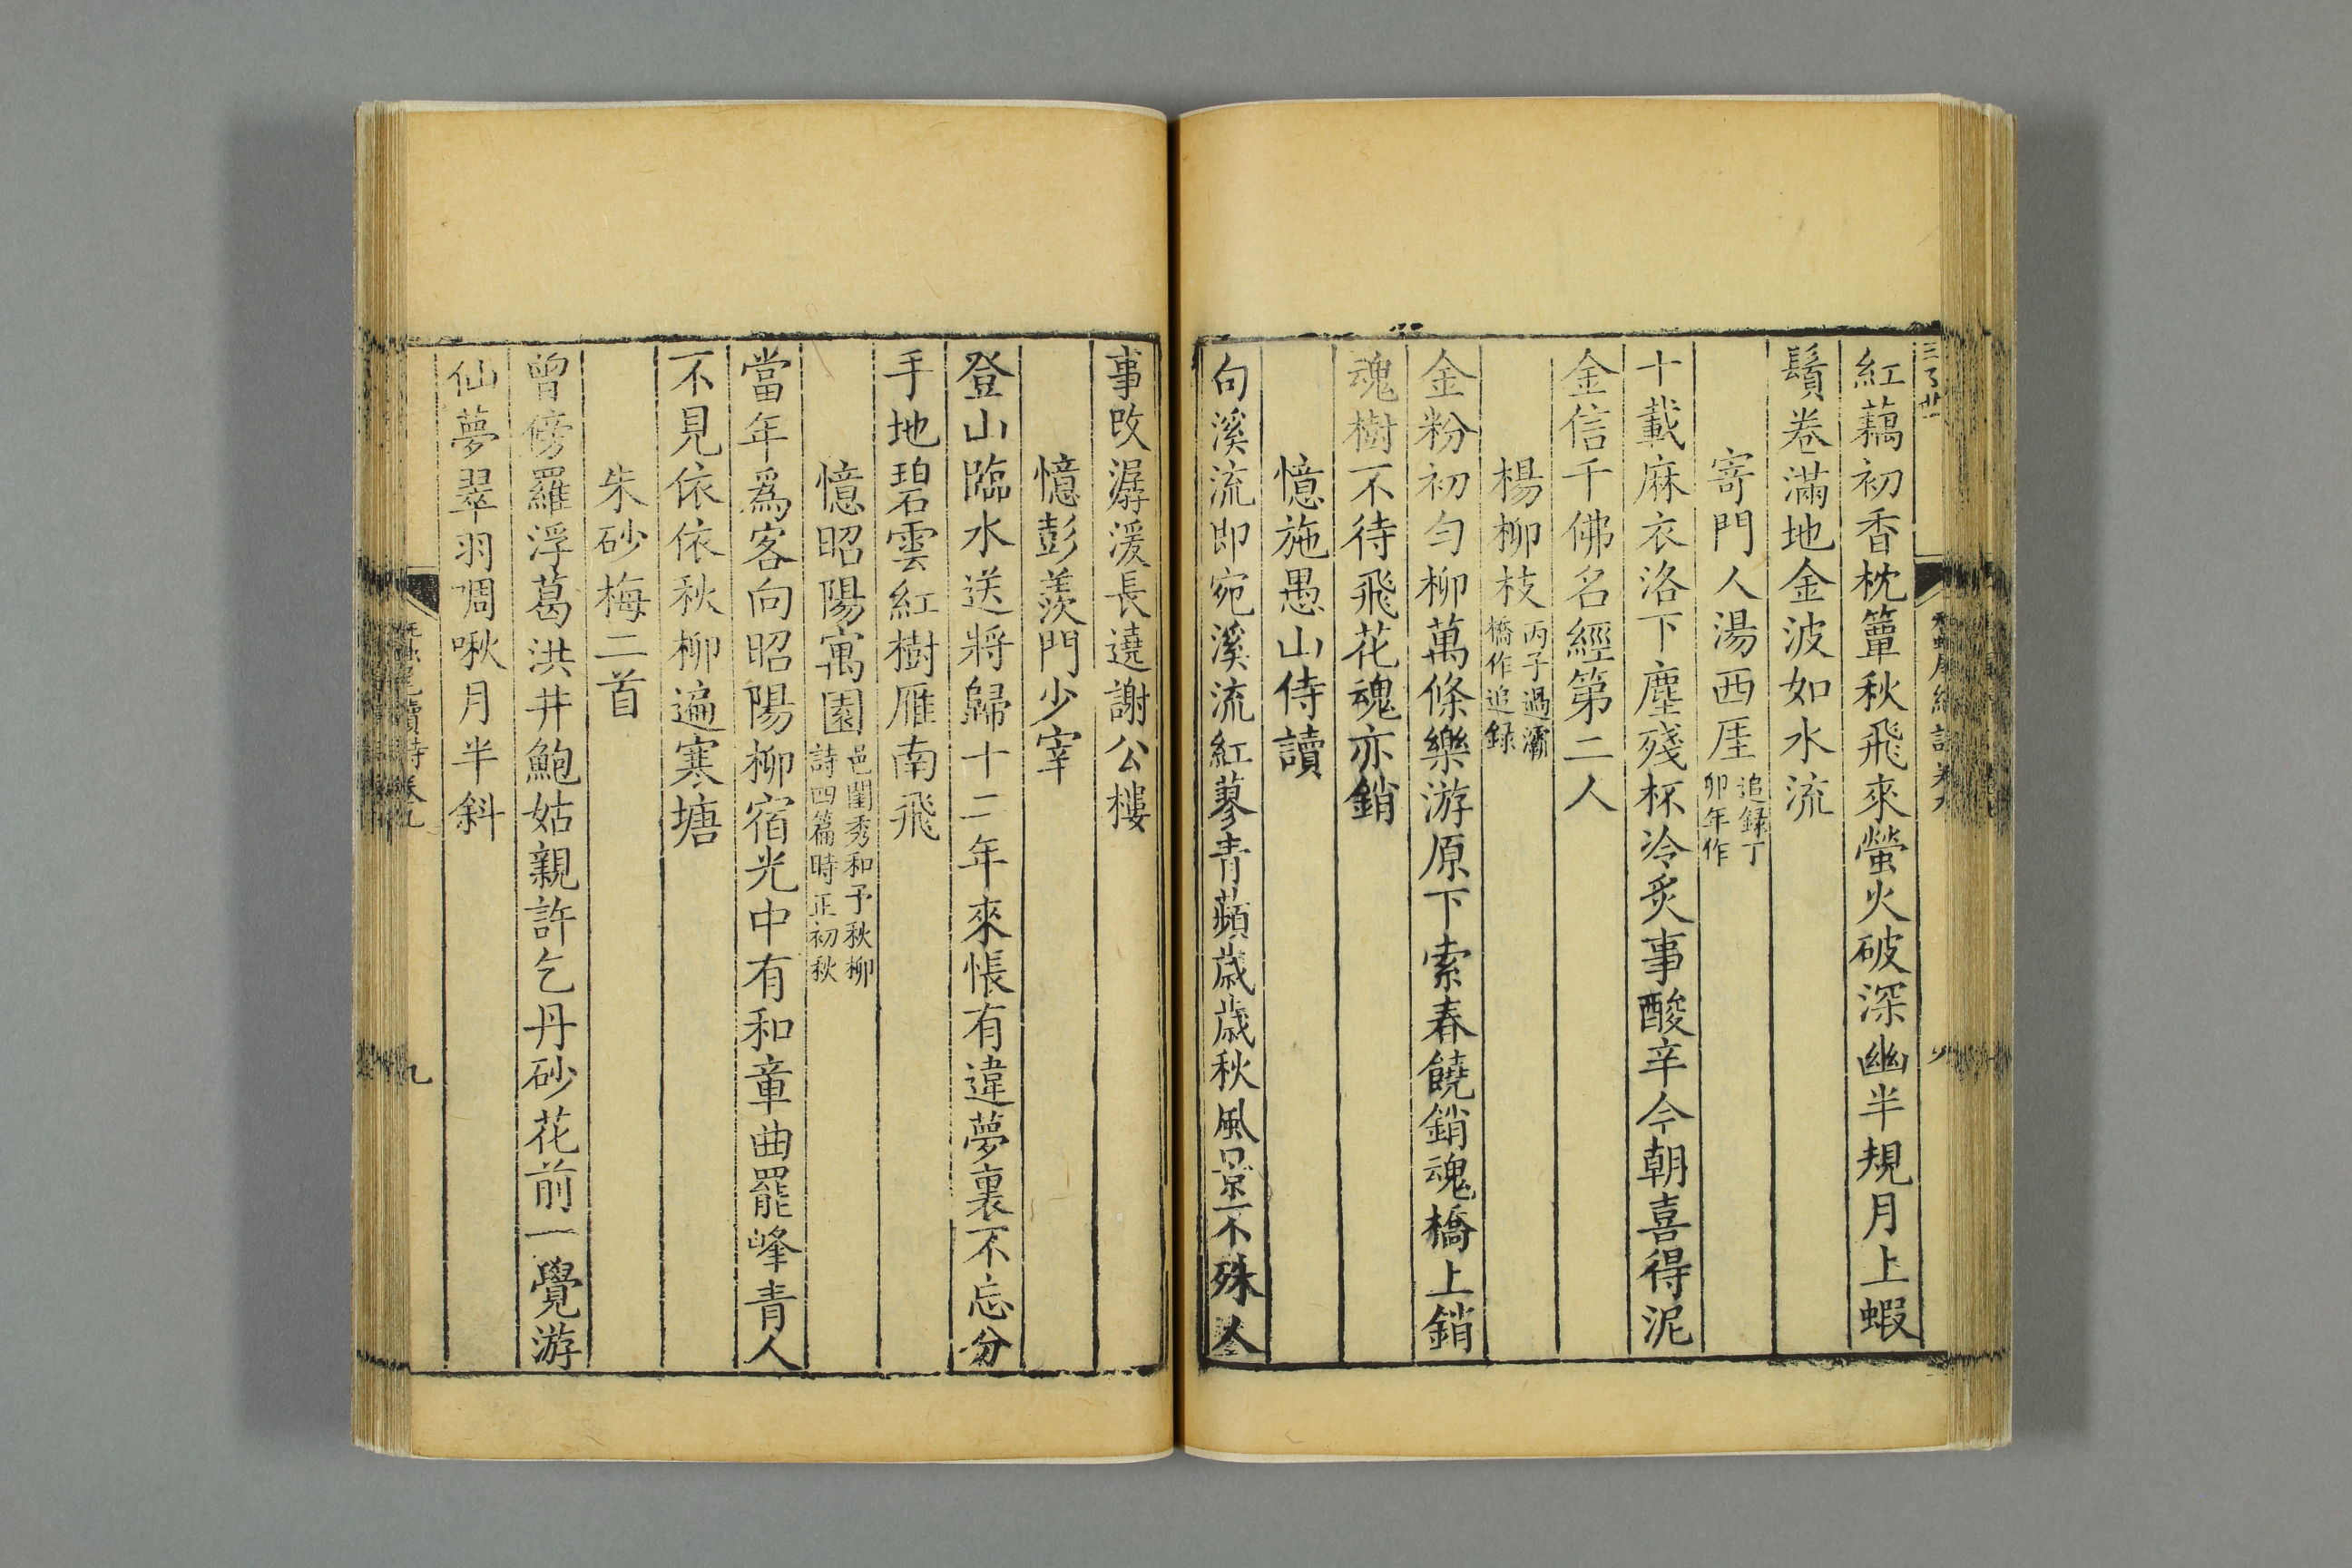 紅藕初香枕簟秋飛來螢火破深幽半規月上蝦
鬚卷滿地金波如水流
寄門人湯西厓追録丁卯年作
十載麻衣洛下塵殘杯冷炙事酸辛今朝喜得泥
金信千佛名經第二人
楊柳枝丙子過灞橋作追録
金粉初勻柳萬條樂游原下索春饒銷魂橋上銷
魂樹不待飛花魂亦銷
憶施愚山侍讀
句溪流即宛溪流紅蓼青蘋歲歲秋風景不殊人
事改潺湲長遶謝公樓
憶彭羨門少宰
登山臨水送將歸十二年來悵有違夢裏不忘分
手地碧雲紅樹雁南飛
憶昭陽寓園邑閨秀和予秋柳詩四篇時正初秋
當年爲客向昭陽柳宿光中有和章曲罷峰青人
不見依依秋柳遍寒塘
朱砂梅二首
曾傍羅浮葛洪井鮑姑親許乞丹砂花前一覺游
仙夢翠羽啁啾月半斜
蠶尾續詩卷九
九